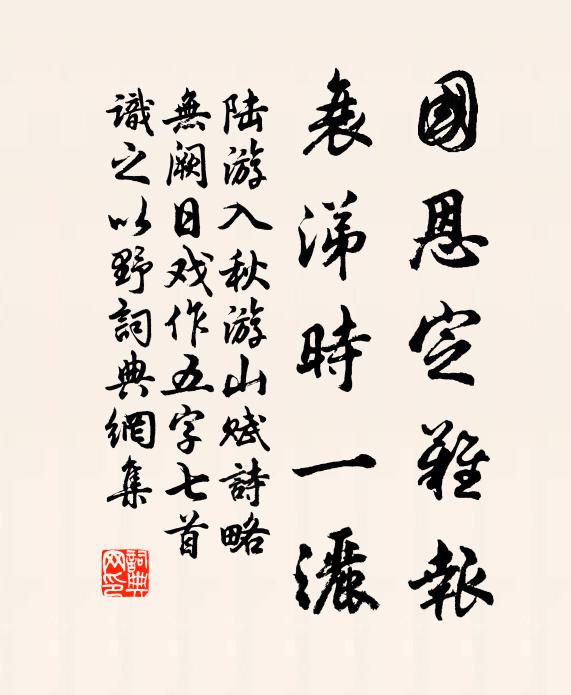 國恩定難報
衰涕時一灑
陆游入秋游山賦詩略
無闕日戏作五字七首
識之以野詞典網集
詞典网印